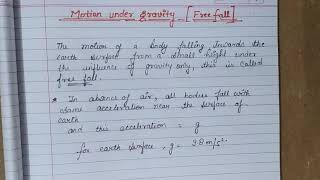 Motion under gravity [Free fall]
The motion of a body falling towards the
earth surface from a small height under
the influence of gravity only, this is called
free fall.
* In absence of air, all bodies fall with
same acceleration near the surface of
earth
and this acceleration = g
for earth surface, g = 9.8 m/s².